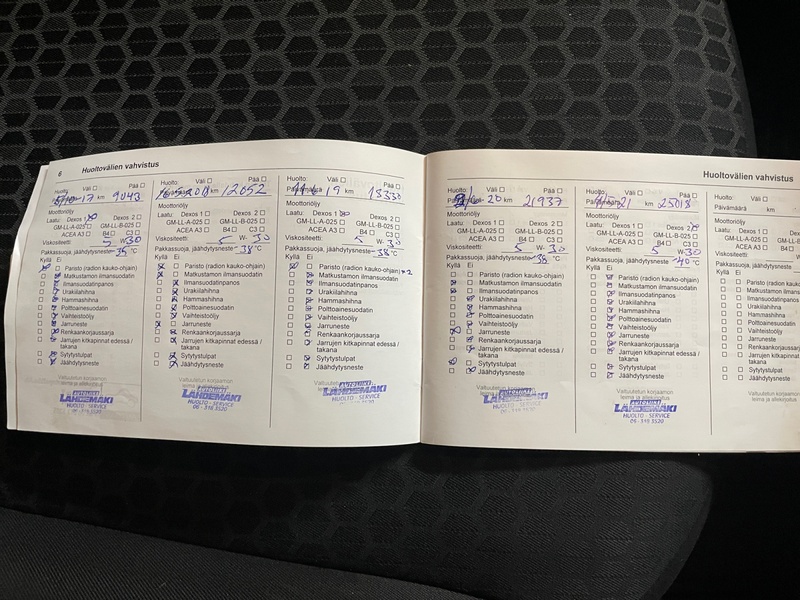 6 Huoltovälien vahvistus
Huolto: Väli Pää
17 km 9043
Moottoriöljy
Laatu: Dexos 1 Dexos 2
GM-LL-A-025 GM-LL-B-025
ACEA A3 B4 C3
Viskositeetti 5 W- 30
Pakkassuoja, jäähdytysneste -35 °C
Kyllä Ei
Paristo (radion kauko-ohjain)
Matkustamon ilmansuodatin
Ilmansuodatinpanos
Urakiilahihna
Hammashihna
Polttoainesuodatin
Vaihteistoöljy
Jarruneste
Renkaankorjaussarja
Jarrujen kitkapinnat edessä /
takana
Sytytystulpat
Jäähdytysneste
Valtuutetun korjaamon
leima ja allekirjoitus
LÄHDEMÄKI
HUOLTO - SERVICE
06 - 318 3520
Huolto: Väli Pää
km 12052
Moottoriöljy
Laatu: Dexos 1 Dexos 2
GM-LL-A-025 GM-LL-B-025
ACEA A3 B4 C3
Viskositeetti 5 W- 30
Pakkassuoja, jäähdytysneste -38 °C
Kyllä Ei
Paristo (radion kauko-ohjain)
Matkustamon ilmansuodatin
Ilmansuodatinpanos
Urakiilahihna
Hammashihna
Polttoainesuodatin
Vaihteistoöljy
Jarruneste
Renkaankorjaussarja
Jarrujen kitkapinnat edessä /
takana
Sytytystulpat
Jäähdytysneste
Valtuutetun korjaamon
LÄHDEMÄKI
HUOLTO - SERVICE
06 - 318 3520
Huolto: Väli Pää
Päivämäärä 19 km 18330
Moottoriöljy
Laatu: Dexos 1 Dexos 2
GM-LL-A-025 GM-LL-B-025
ACEA A3 B4 C3
Viskositeetti 5 W- 30
Pakkassuoja, jäähdytysneste -38 °C
Kyllä Ei
Paristo (radion kauko-ohjain) x2
Matkustamon ilmansuodatin
Ilmansuodatinpanos
Urakiilahihna
Hammashihna
Polttoainesuodatin
Vaihteistoöljy
Jarruneste
Renkaankorjaussarja
Jarrujen kitkapinnat edessä /
takana
Sytytystulpat
Jäähdytysneste
Valtuutetun korjaamon
LÄHDEMÄKI
HUOLTO - SERVICE
Huoltovälien vahvistus
Huolto: Väli Pää
20 km 21937
Moottoriöljy
Laatu: Dexos 1 Dexos 2
GM-LL-A-025 GM-LL-B-025
ACEA A3 B4 C3
Viskositeetti 5 W- 30
Pakkassuoja, jäähdytysneste -38 °C
Kyllä Ei
Paristo (radion kauko-ohjain)
Matkustamon ilmansuodatin
Ilmansuodatinpanos
Urakiilahihna
Hammashihna
Polttoainesuodatin
Vaihteistoöljy
Jarruneste
Renkaankorjaussarja
Jarrujen kitkapinnat edessä /
takana
Sytytystulpat
Jäähdytysneste
Valtuutetun korjaamon
LÄHDEMÄKI
HUOLTO - SERVICE
Huolto: Väli Pää
21 km 25018
Moottoriöljy
Laatu: Dexos 1 Dexos 2
GM-LL-A-025 GM-LL-B-025
ACEA A3 B4 C3
Viskositeetti 5 W- 30
Pakkassuoja, jäähdytysneste -40 °C
Kyllä Ei
Paristo (radion kauko-ohjain)
Matkustamon ilmansuodatin
Ilmansuodatinpanos
Urakiilahihna
Hammashihna
Polttoainesuodatin
Vaihteistoöljy
Jarruneste
Renkaankorjaussarja
Jarrujen kitkapinnat edessä /
takana
Sytytystulpat
Jäähdytysneste
Valtuutetun korjaamon
leima ja allekirjoitus
LÄHDEMÄKI
HUOLTO - SERVICE
06 - 318 3520
Huolto: Väli
Päivämäärä km
Moottoriöljy
Laatu: Dexos 1
GM-LL-A-025
ACEA A3 B4
Viskositeetti
Pakkassuoja, jäähdytysneste
Kyllä Ei
Paristo (radion
Matkustamon
Ilmansuodatinpanos
Urakiilahihna
Hammashihna
Polttoainesuodatin
Vaihteistoöljy
Jarruneste
Renkaankorjaus
Jarrujen kitkap
takana
Sytytystulpat
Jäähdytysneste
Valtuutetun kor
leima ja alleki